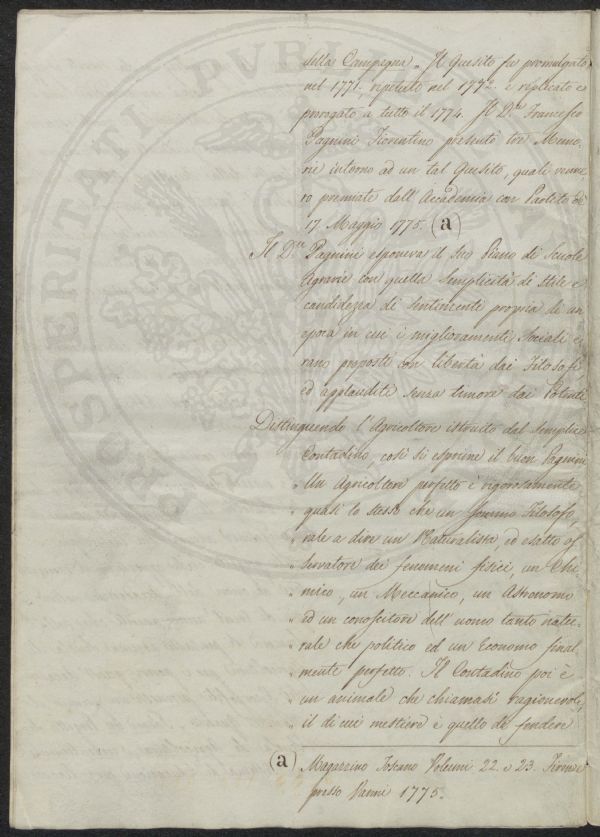 della Campagna „ Il Quesito fu promulgato
nel 1771, ripetuto nel 1772. e replicato e
prorogato a tutto il 1774. Il D.re Francesco
Pagnini Fiorentino presentò tre Memo,
rie intorno ad un tal Quesito, quale venne,
ro premiate dall'Accademia con Partito di
17. Maggio 1775. (a)
Il D.re Pagnini esponeva il suo Piano di Scuole
Agrarie con quella semplicità di stile e
candidezza di sentimenti propria di un
epoca in cui i miglioramenti sociali e,
rano proposti con libertà dai Filosofi,
ed applauditi senza timore dai Potenti
Distinguendo l'Agricoltore istruito dal semplice
Contadino, così si esprime il buon Pagnini
„ Un Agricoltore perfetto è rigorosamente
„ quasi lo stesso che un sommo Filosofo,
„ vale a dire un Naturalista, ed esatto os
„ servatore dei fenomeni fisici, un Chi,
„ mico, un Meccanico, un Astronomo
„ ed un conoscitore dell'uomo tanto natu,
„ rale che politico ed un Economo final,
„ mente perfetto. Il Contadino poi è
„ un animale che chiamasi ragionevole,
„ il di cui mestiere è quello di fendere
(a) Magazzino Toscano Volumi 22. e 23. Firenze
presso 1775.
PROSPERITATI PVBLIC